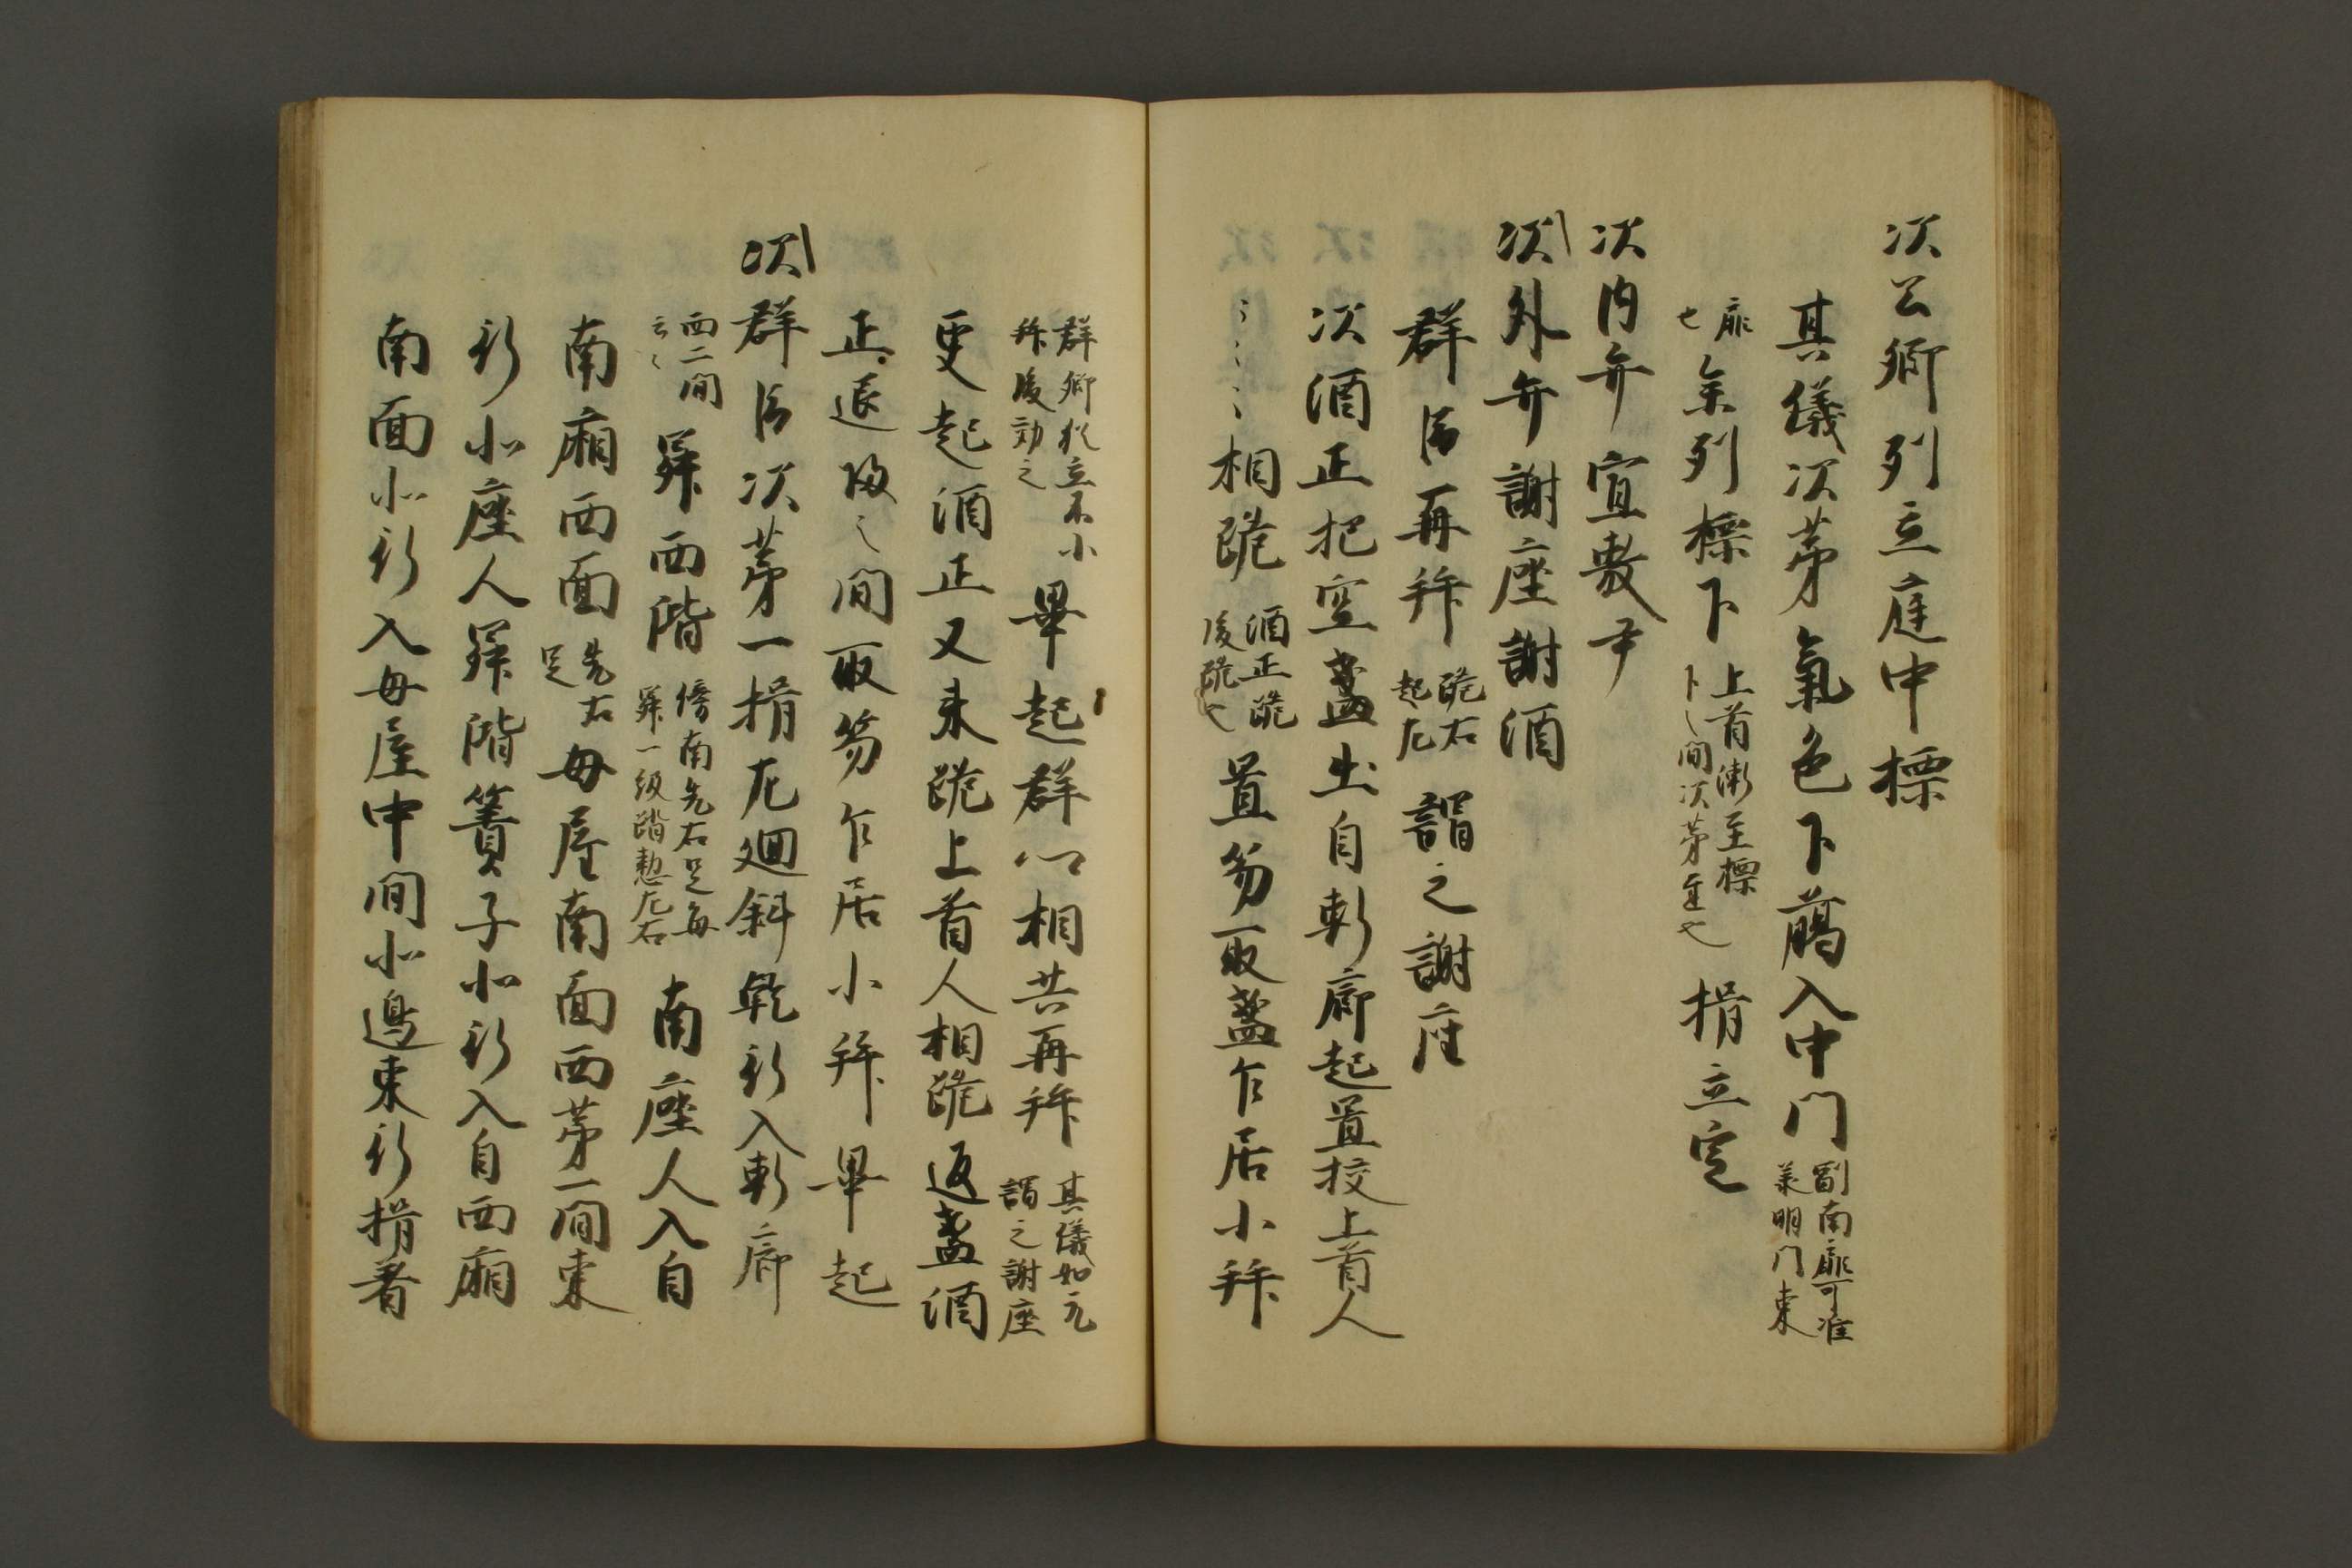 次公卿列立庭中標
其儀次第氣色下﨟入中門副南扉可准
義明門東
扉
也参列標下上首漸至標
下之間次第進也揖立定
次内弁宣敷尹
次外弁謝座謝酒
群臣再拝跪右
起左謂之謝座
次酒正把空盞出自軒廊起置授上首人
〻〻〻〻相跪酒正跪
後跪也置笏取盞乍居小拝
群卿猶立不小
拝後効之畢起群臣相共再拝其儀如元
謂之謝座
更起酒正又来跪上首人相跪返盞酒
正退帰之間取笏乍居小拝畢起
次群臣次第一揖左廻斜乾行入軒廊
西二間
云々昇西階傍南先右足毎
昇一級踏懃左右南座人入自
南廂西面先右
足母屋南面西第一間東
行北座人昇階簀子北行入自西廂
南面北行入母屋中間北邊東行揖着